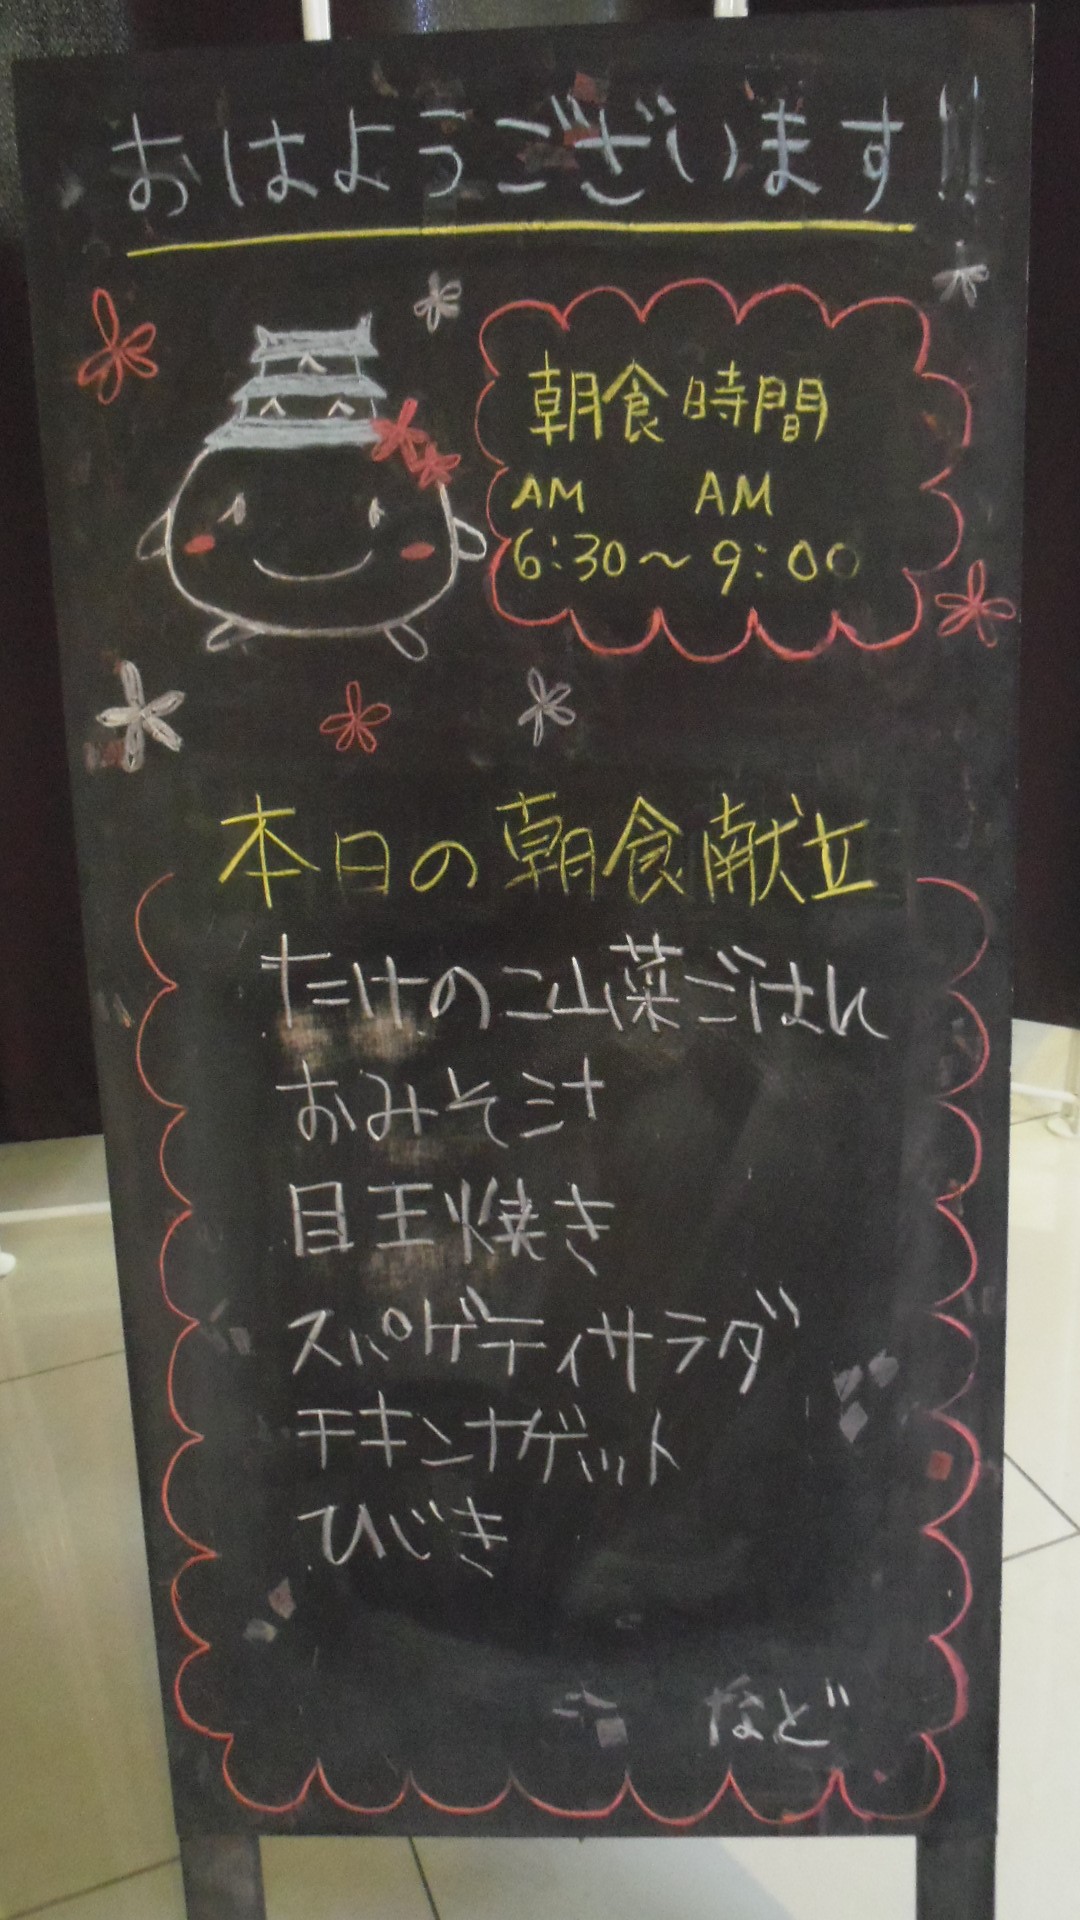 おはようございます!!
朝食時間
AM AM
6:30～9:00
本日の朝食献立
たけのこ山菜ごはん
おみそ汁
目玉焼き
スパゲティサラダ
チキンナゲット
ひじき
など